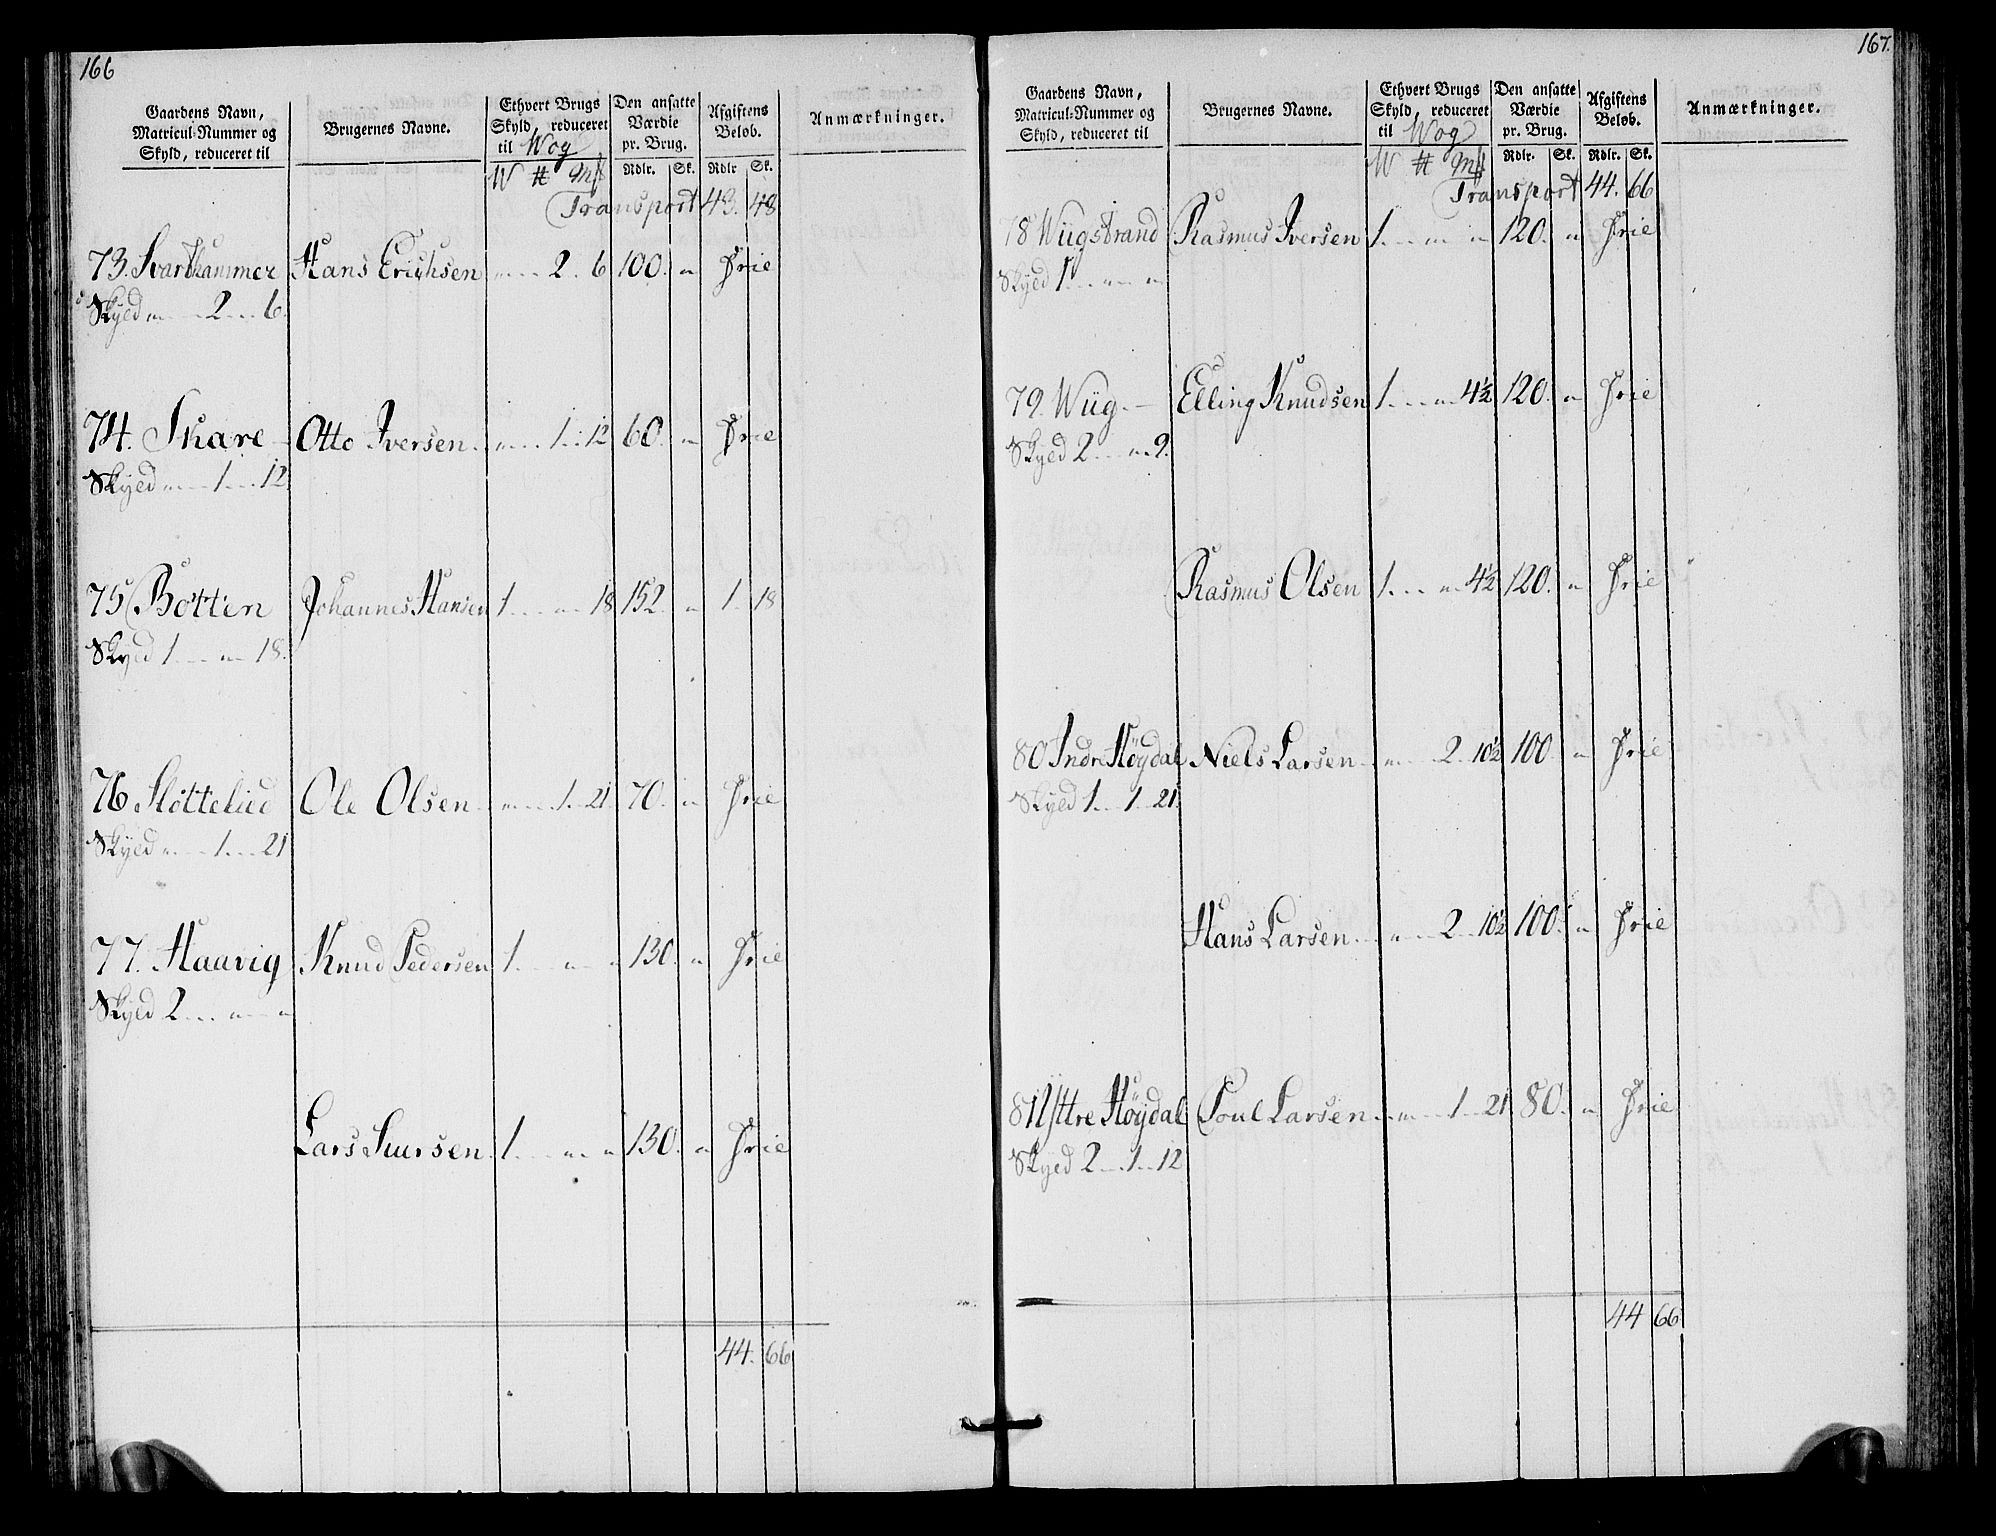 166
Gaardens Navn, Matricul-Nummer og Skyld, reduceret til
Brugernes Navne.
Ethvert Brugs Skyld, reduceret til Wog
Den ansatte Værdie pr. Brug.
Afgiftens Beløb.
Anmærkninger.
W # Mk Rdlr. Sk. Rdlr Sk.
Transport 43. 48
73. Svartkammer Hans Erichsen „ 2. 6 100. „ Frie
Skyld „ 2 6.
74. Skare Otto Iversen. „ 1. 12 60. „ Frie
Skyld „ 1 12.
75 Botten Johannes Hansen 1 „ 18 152. „ 1. 18
Skyld 1 „ 18.
76 Slottelied Ole Olsen „ 1. 21 70. „ Frie
Skyld „ 1 21
77. Haavig Knud Pedersen 1 „ „ 130. „ Frie
Skyld 2 „ „
Lars Siursen 1 „ „ 130. „ Frie
44. 66
167.
Gaardens Navn, Matricul-Nummer og Skyld, reduceret til
Brugernes Navne.
Ethvert Brugs Skyld, reduceret til Wog
Den ansatte Værdie pr. Brug.
Afgiftens Beløb.
Anmærkninger.
W # Mk Rdlr. Sk. Rdlr. Sk.
Transport 44. 66
78 Wiigstrand Rasmus Iversen 1 „ „ 120. „ Frie
Skyld 1 „ „
79. Wiig Elling Knudsen 1 „ 4½ 120. „ Frie
Skyld 2 „ 9.
Rasmus Olsen 1 „ 4½ 120. „ Frie
80 Indre Høydal Niels Larsen „ 2 10½ 100 „ Frie
Skyld 1 1 21.
Hans Larsen „ 2 10½ 100. „ Frie
81 Ystre Høydal Poul Larsen „ 1 21 80. „ Frie
Skyld 2 1 12
44 66